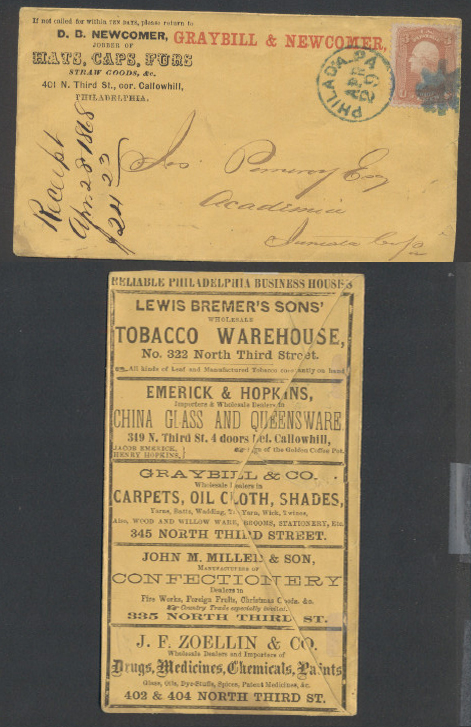 If not called for within TEN DAYS, please return to
D. D. NEWCOMER, GRAYBILL & NEWCOMER,
JOBBER OF
HATS, CAPS, FURS
STRAW GOODS, &c.
401 N. Third St., cor. Callowhill,
PHILADELPHIA.
PHILAD'A. PA
APR
29
Receipt
Apr. 28 1868
$24.23
Jos Pomeroy Esq
Academia
Juniata Co Pa
RELIABLE PHILADELPHIA BUSINESS HOUSES
LEWIS BREMER'S SONS'
WHOLESALE
TOBACCO WAREHOUSE,
No. 322 North Third Street.
All kinds of Leaf and Manufactured Tobacco constantly on hand
EMERICK & HOPKINS,
Importers & Wholesale Dealers in
CHINA GLASS AND QUEENSWARE
349 N. Third St. 4 doors bel. Callowhill,
JACOB EMERICK,
HENRY HOPKINS,
Sign of the Golden Coffee Pot.
GRAYBILL & CO.
Wholesale Dealers in
CARPETS, OIL CLOTH, SHADES,
Yarns, Batts, Wadding, Tie Yarn, Wick, Twines,
Also, WOOD AND WILLOW WARE, BROOMS, STATIONERY, Etc.
345 NORTH THIRD STREET.
JOHN M. MILLER & SON,
MANUFACTURERS OF
CONFECTIONERY
Dealers in
Fire Works, Foreign Fruits, Christmas Goods, &c.
Country Trade especially solicited.
335 NORTH THIRD ST.
J. F. ZOELLIN & CO.
Wholesale Dealers and Importers of
Drugs, Medicines, Chemicals, Paints
Glass, Oils, Dye-Stuffs, Spices, Patent Medicines, &c.
402 & 404 NORTH THIRD ST.